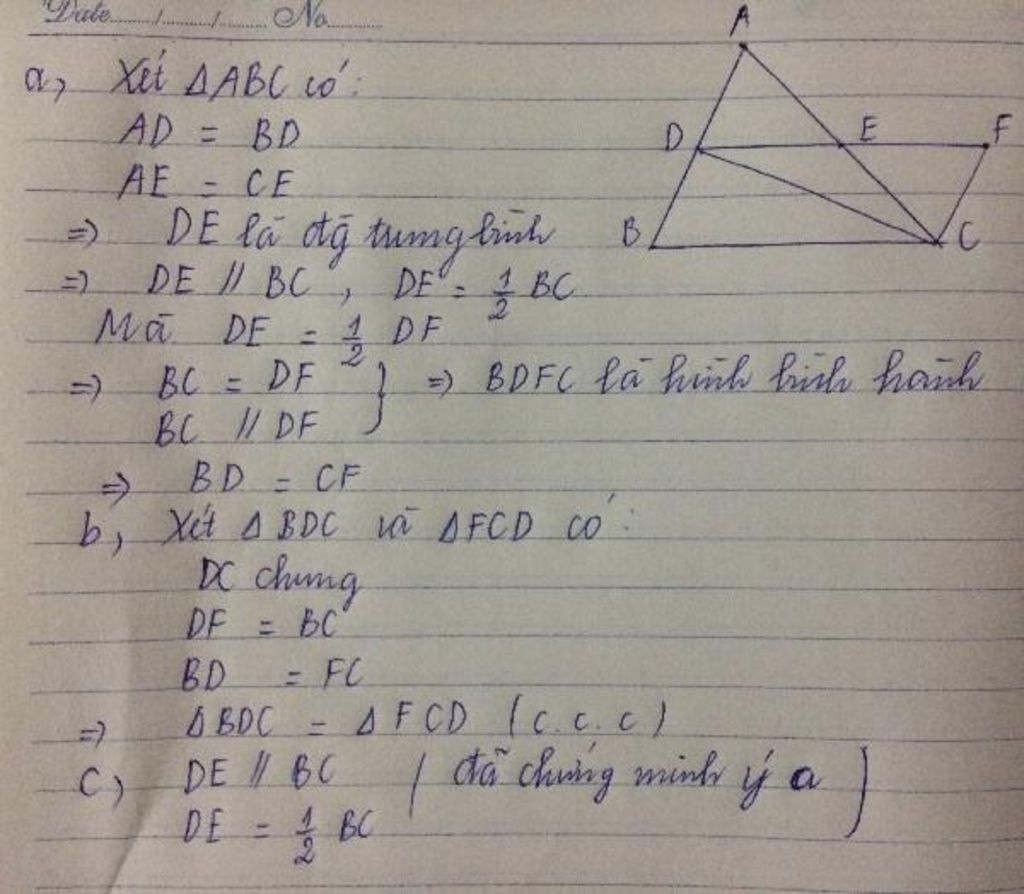 Date....../......./....... No........
A
D E F
B C
a, Xét ΔABC có:
AD = BD
AE = CE
=> DE là đg trung bình
=> DE // BC , DE = 1/2 BC
Mà DE = 1/2 DF
=> BC = DF } => BDFC là hình bình hành
BC // DF
=> BD = CF
b, Xét Δ BDC và ΔFCD có:
DC chung
DF = BC
BD = FC
=> ΔBDC = ΔFCD (c.c.c)
c) DE // BC ( đã chứng minh ý a )
DE = 1/2 BC